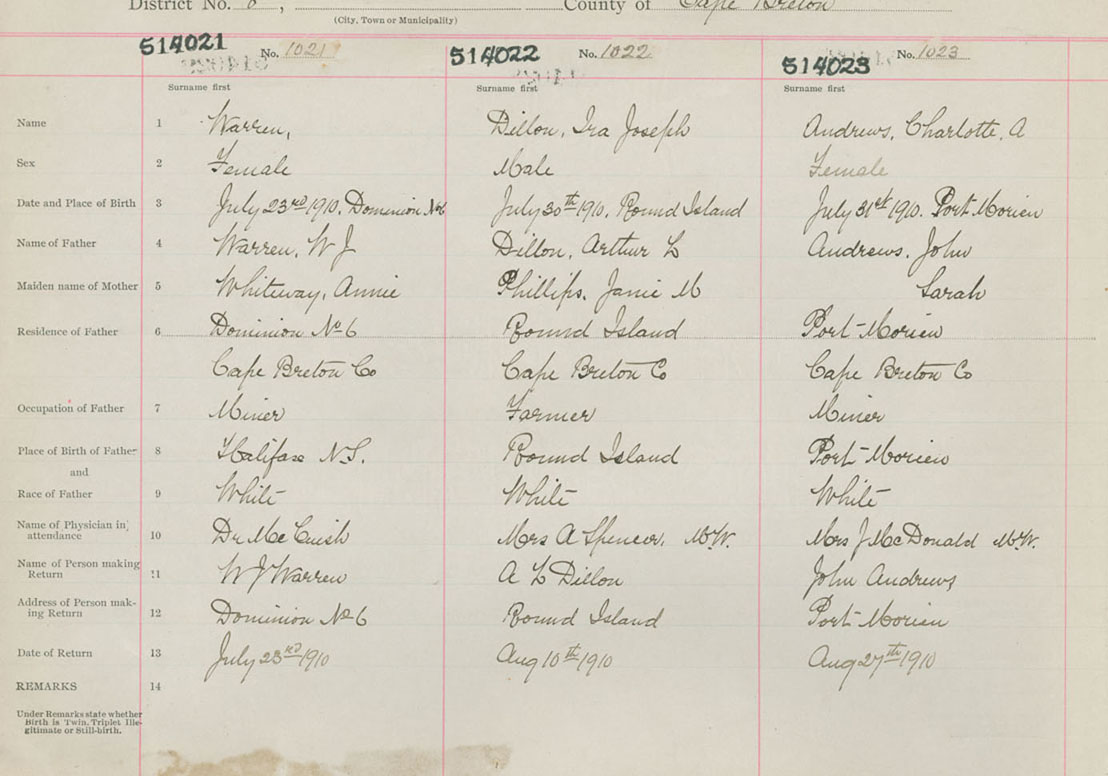 District No. 8, County of Cape Breton
(City, Town or Municipality)
514021 No. 1021 514022 No. 1022 514023 No. 1023
Surname first Surname first Surname first
Name 1 Warren, Dillon, Ira Joseph Andrews, Charlotte, A
Sex 2 Female Male Female
Date and Place of Birth 3 July 23rd 1910. Dominion No 6 July 30th 1910, Round Island July 31st 1910. Port Morien
Name of Father 4 Warren, W J Dillon, Arthur L Andrews, John
Maiden name of Mother 5 Whiteway, Annie Phillips, Janie M Sarah
Residence of Father 6 Dominion No 6 Round Island Port Morien
Cape Breton Co Cape Breton Co Cape Breton Co
Occupation of Father 7 Miner Farmer Miner
Place of Birth of Father 8 Halifax N.S. Round Island Port Morien
and
Race of Father 9 White White White
Name of Physician in
attendance 10 Dr McCuish Mrs A Spencer, MW. Mrs J McDonald MW.
Name of Person making
Return 11 W J Warren A L Dillon John Andrews
Address of Person mak-
ing Return 12 Dominion No 6 Round Island Port Morien
Date of Return 13 July 23rd 1910 Aug 10th 1910 Aug 27th 1910
REMARKS 14
Under Remarks state whether
Birth is Twin, Triplet Ille-
gitimate or Still-birth.